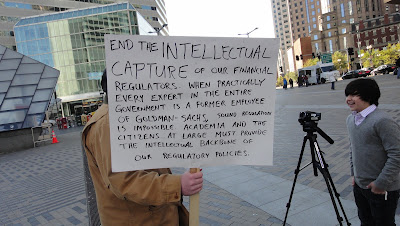 END THE INTELLECTUAL
CAPTURE OF OUR FINANCIAL
REGULATORS. WHEN PRACTICALLY
EVERY EXPERT IN THE ENTIRE
GOVERNMENT IS A FORMER EMPLOYEE
OF GOLDMAN-SACHS, SOUND REGULATION
IS IMPOSSIBLE. ACADEMIA AND THE
CITIZENS AT LARGE MUST PROVIDE
THE INTELLECTUAL BACKBONE OF
OUR REGULATORY POLICIES.